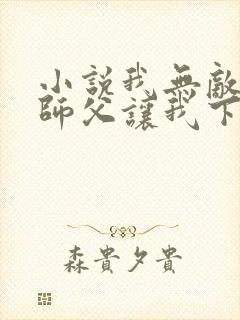 小説我無敵
師父讓我下
森貴夕貴